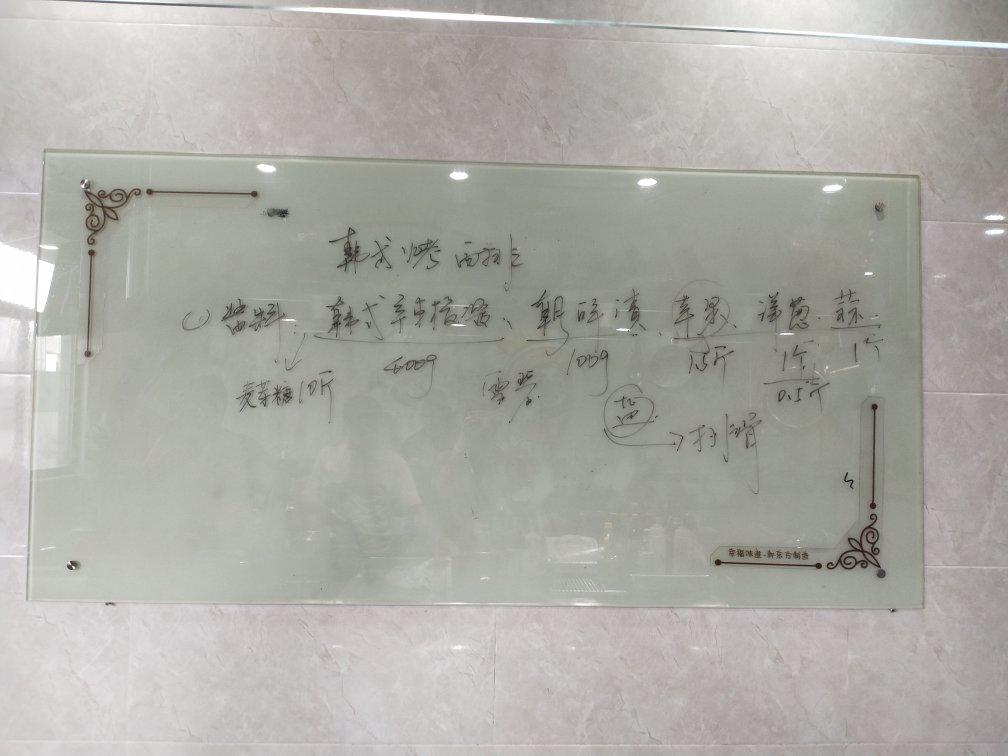 韩式烤西排
① 酱料: 韩式辛辣酱、朝鲜渍、苹果、洋葱、蒜
麦芽糖10斤 600g 雪碧 100g 1.5斤 1个 1个
0.5斤
盐 → 扫滑
幸福味道·新东方制造